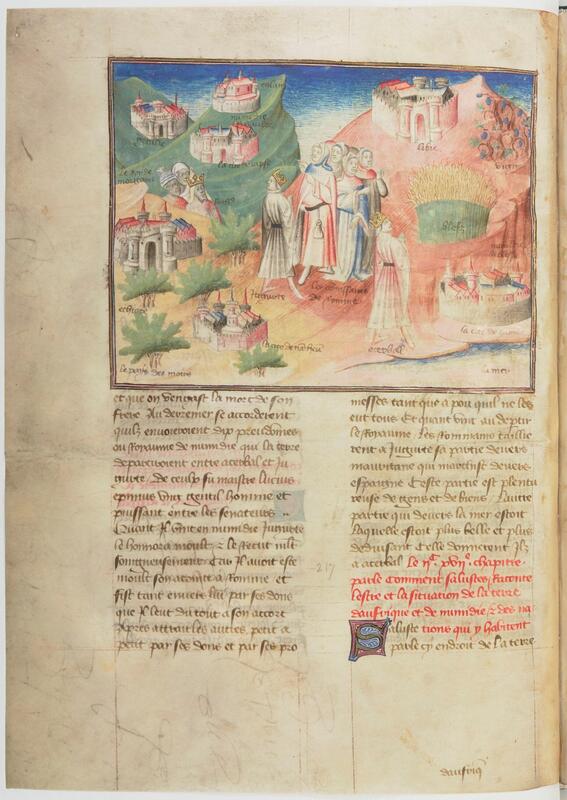 libie
le roy de
mortaigne
Jugurte
les conssaulx
de Romme
aderbal
bledz
la mer
le pays des mores
et que on vengast la mort de son
frere Au derrenier se accorderent
quilz envoieroient dix preudomes
ou Royaume de numidie qui la terre
departiroient entre aterbal et Ju
gurte / De ceulx fu maistre lucius
epinius vng gentil homme et
puissant entre les senateurs
Quant Il vint en numidie Jugurte
le honnora moult et le servit mlt
songneusement Car Il avoit este
moult son acointe a Romme et
fist tant envers lui par ses dons
que Il leut du tout a son accort
Apres attrait les autres petit a
petit par ses dons et par ses pro
messes tant que a pou quil ne les
eut tous Et quant vint au departir
le Royaume / les Rommains taillie
rent a Jugurte sa partie devers
mauritane qui marchist devers
espaigne Ceste partie est plentu
reuse de gens et de biens / Lautre
partie qui devers la mer estoit
laquelle estoit plus belle et plus
deduisant Celle donnerent Ilz
a aterbal Le IIc. xviie. chapitre
parle Comment saluste Raconte
lestre et la situation de la terre
daufrique et de numidie / et des na
tions qui y habitent
Saluste
parle cy endroit de la terre
-217
daufriq